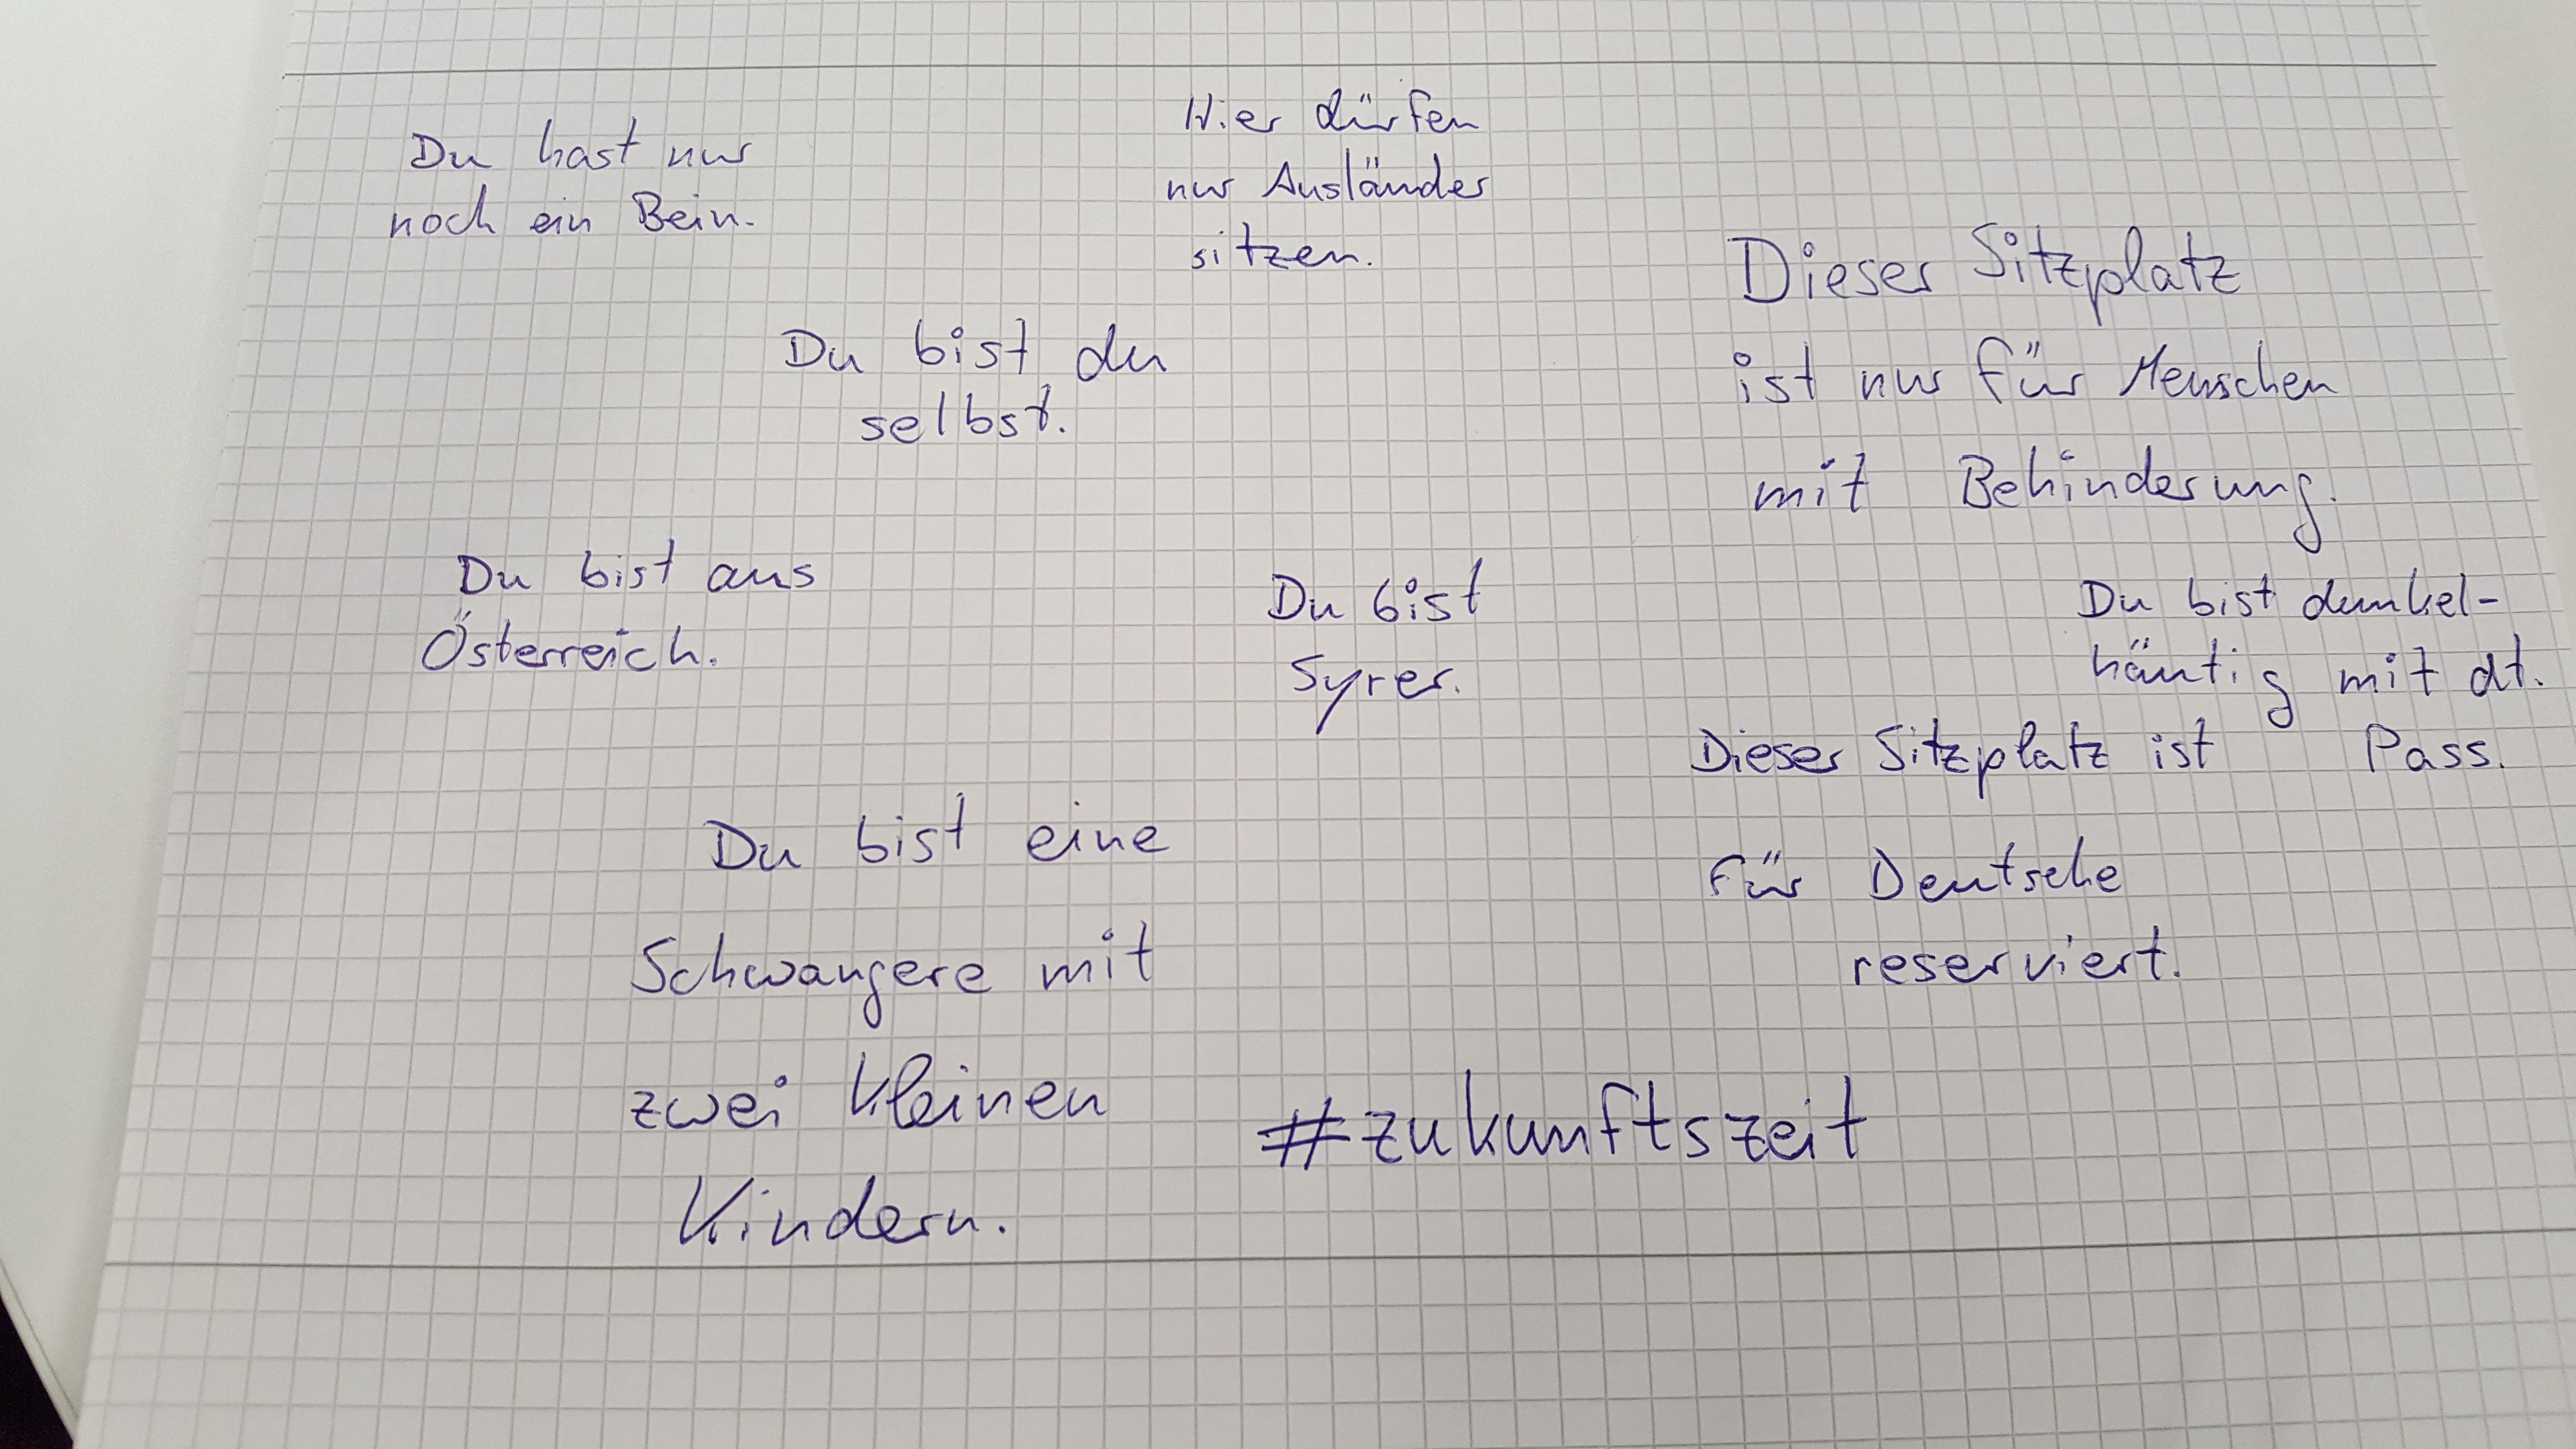 Du hast nur
noch ein Bein.
Hier dürfen
nur Ausländer
sitzen.
Dieser Sitzplatz
ist nur für Menschen
mit Behinderung.
Du bist du
selbst.
Du bist aus
Österreich.
Du bist
Syrer.
Du bist dunkel-
häutig mit dt.
Pass.
Dieser Sitzplatz ist
für Deutsche
reserviert.
Du bist eine
Schwangere mit
zwei kleinen
Kindern.
#zukunftszeit